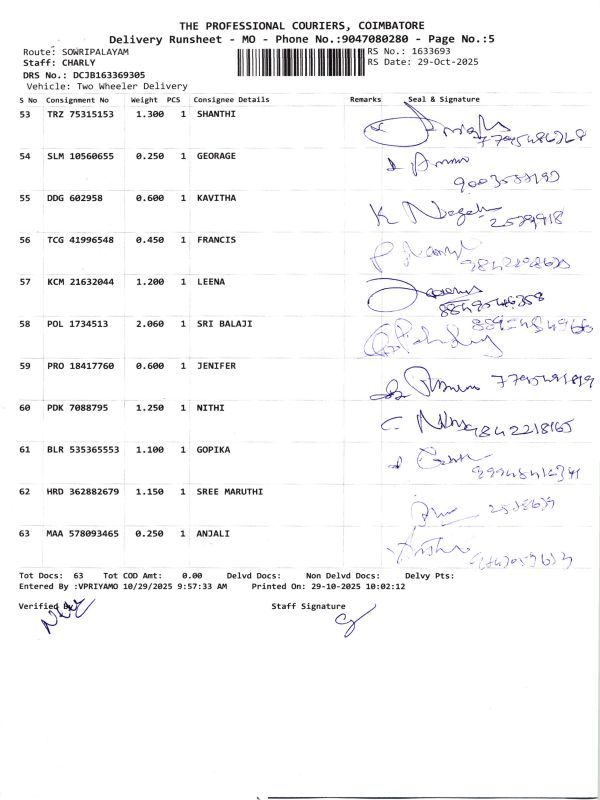 THE PROFESSIONAL COURIERS, COIMBATORE
Delivery Runsheet - MO - Phone No.:9047080280 - Page No.:5
Route: SOWRIPALAYAM RS No.: 1633693
Staff: CHARLY RS Date: 29-Oct-2025
DRS No.: DCJB163369305
Vehicle: Two Wheeler Delivery
S No Consignment No Weight PCS Consignee Details Remarks Seal & Signature
53 TRZ 75315153 1.300 1 SHANTHI
54 SLM 10560655 0.250 1 GEORAGE
55 DDG 602958 0.600 1 KAVITHA
56 TCG 41996548 0.450 1 FRANCIS
57 KCM 21632044 1.200 1 LEENA
58 POL 1734513 2.060 1 SRI BALAJI
59 PRO 18417760 0.600 1 JENIFER
60 PDK 7088795 1.250 1 NITHI 9842218165
61 BLR 535365553 1.100 1 GOPIKA
62 HRD 362882679 1.150 1 SREE MARUTHI
63 MAA 578093465 0.250 1 ANJALI
Tot Docs: 63 Tot COD Amt: 0.00 Delvd Docs: Non Delvd Docs: Delvy Pts:
Entered By :VPRIYAMO 10/29/2025 9:57:33 AM Printed On: 29-10-2025 10:02:12
Verified By Staff Signature